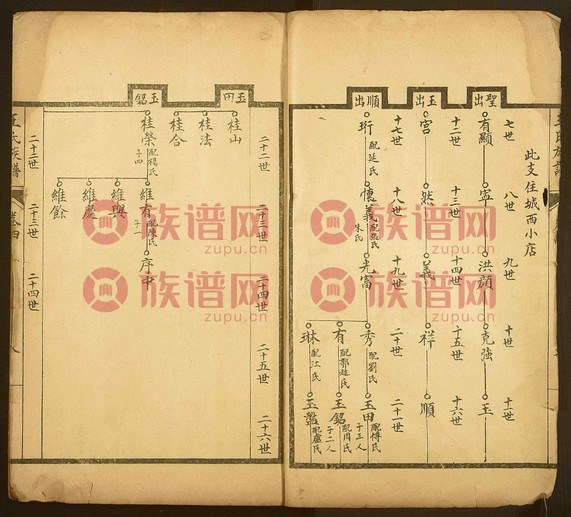 此支住城西小店
七世
八世
九世
十世
十一世
聖出
有顯
寧
洪顏
克強
玉
十二世
十三世
十四世
十五世
十六世
玉出
宮
然
義
祥
順
十七世
十八世
十九世
二十世
二十一世
順出
珩 配延氏
懷義 配張氏 朱氏
光富
秀 配劉氏
玉田 配傅氏 子三人
有 配郭趙氏
玉銘 配周氏 子二人
琳 配江氏
玉盤 配盧氏
二十二世
二十三世
二十四世
二十五世
二十六世
玉田
桂山
桂法
桂合
玉銘
桂榮 配楊氏 子四
維有 配陳氏 子一
序中
維興
維慶
維餘
王氏族譜
卷四
二十二世
二十三世
二十四世
族谱网
zupu.cn
族谱网
zupu.cn
族谱网
zupu.cn
族谱网
zupu.cn